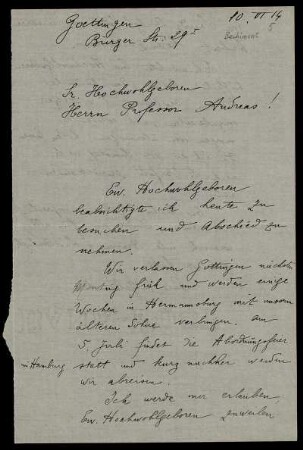 Goettingen
Bürger Str. 29 I
10. VI 14
Sr. Hochwohlgeboren
Herrn Professor Andreas!
Ew. Hochwohlgeboren
beabsichtigte ich heute zu
besuchen und Abschied zu
nehmen.
Wir verlassen Göttingen nächsten
Montag früh und werden einige
Wochen in Hermannsburg mit unsern
älteren Sohne verbringen. Am
5 Juli findet die Abordnungsfeier
in Hamburg statt und kurz nachher werden
wir abreisen.
Ich werde mir erlauben
Ew. Hochwohlgeboren zuweilen